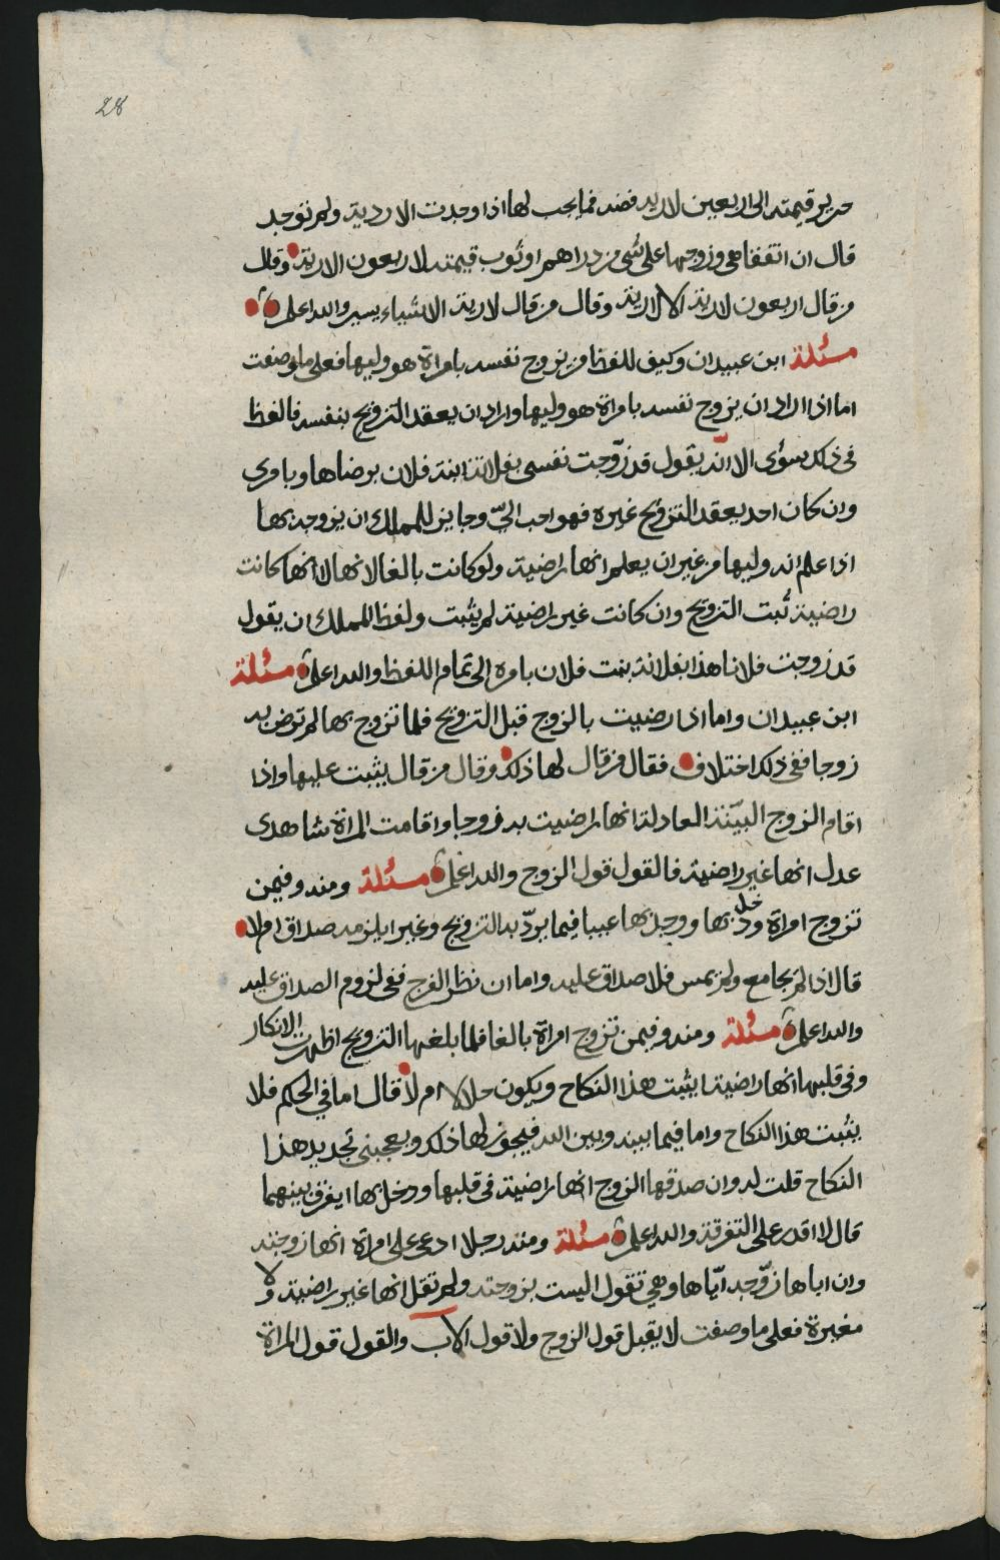 28
حرير قيمته الى اربعين لارية فضة فما يجب لها اذا وجدت الاردية ولم توجد
قال ان اتفقا هي وزوجها على شي من دراهم او ثوب قيمته لاربعون الارية وقال
من قال اربعون لارية الا لارية وقال من قال لارية الاشياء يسير والله اعلم
مسئلة ابن عبيدان وكيف للفظ من يزوج نفسه بامراة هو وليها فعلى ما وصفت
اما اذا اراد ان يزوج نفسه بامراة هو وليها واراد ان يعقد التزويج بنفسه فالفظ
في ذلك سوى الا انّه يقول قد زوّجت نفسي بفلانة ابنة فلان برضاها وبامري
وان كان احد يعقد التزويج غيره فهو احب اليّ وجايز للمملك ان يزوجه بها
اذا علم انه وليها من غير ان يعلم انها راضية ولو كانت بالغا لانها لا انها كانت
راضية ثبت التزويج وان كانت غير راضية لم يثبت ولفظ المملك ان يقول
قد زوجت فلانا هذا بفلانة بنت فلان بامره الى تمام اللفظ والله اعلم مسئلة
ابن عبيدان واما اذا رضيت بالزوج قبل التزويج فلما تزوج بها لم ترض به
زوجا ففي ذلك اختلاف فقال من قال لها ذلك وقال من قال يثبت عليها واذا
اقام الزوج البيّنة العادلة انها رضيت به زوجا واقامت المراة شاهدى
عدل انها غير راضية فالقول قول الزوج والله اعلم مسئلة ومنه وفيمن
تزوج امراة ودخل بها ووجد بها عيبا فيما يردّ به التزويج وغير ايلزمه صداق ام لا
قال اذا لم يجامع ولم يمس فلا صداق عليه واما ان نظر الفرج ففي لزوم الصداق عليه
والله اعلم مسئلة ومنه وفيمن تزوج امراة بالغا فلما بلغها التزويج اظهرت الانكار
وفي قلبها انها راضية ايثبت هذا النكاح ويكون حلالا ام لا قال اما في الحكم فلا
يثبت هذا النكاح واما فيما بينه وبين الله فيجوز لها ذلك ويعجبني تجديد هذا
النكاح قلت له وان صدقها الزوج انها راضية في قلبها ودخل بها ايفرق بينهما
قال لا اقدر على التفرقة والله اعلم مسئلة ومنه رجلا ادعى على امراة انها زوجته
وان اباها زوّجه ايّاها وهي تقول اليست بزوجته ولم تقل انها غير راضية ولا
مغيرة فعلى ما وصفت لا يقبل قول الزوج ولا قول الاب والقول قول المراة